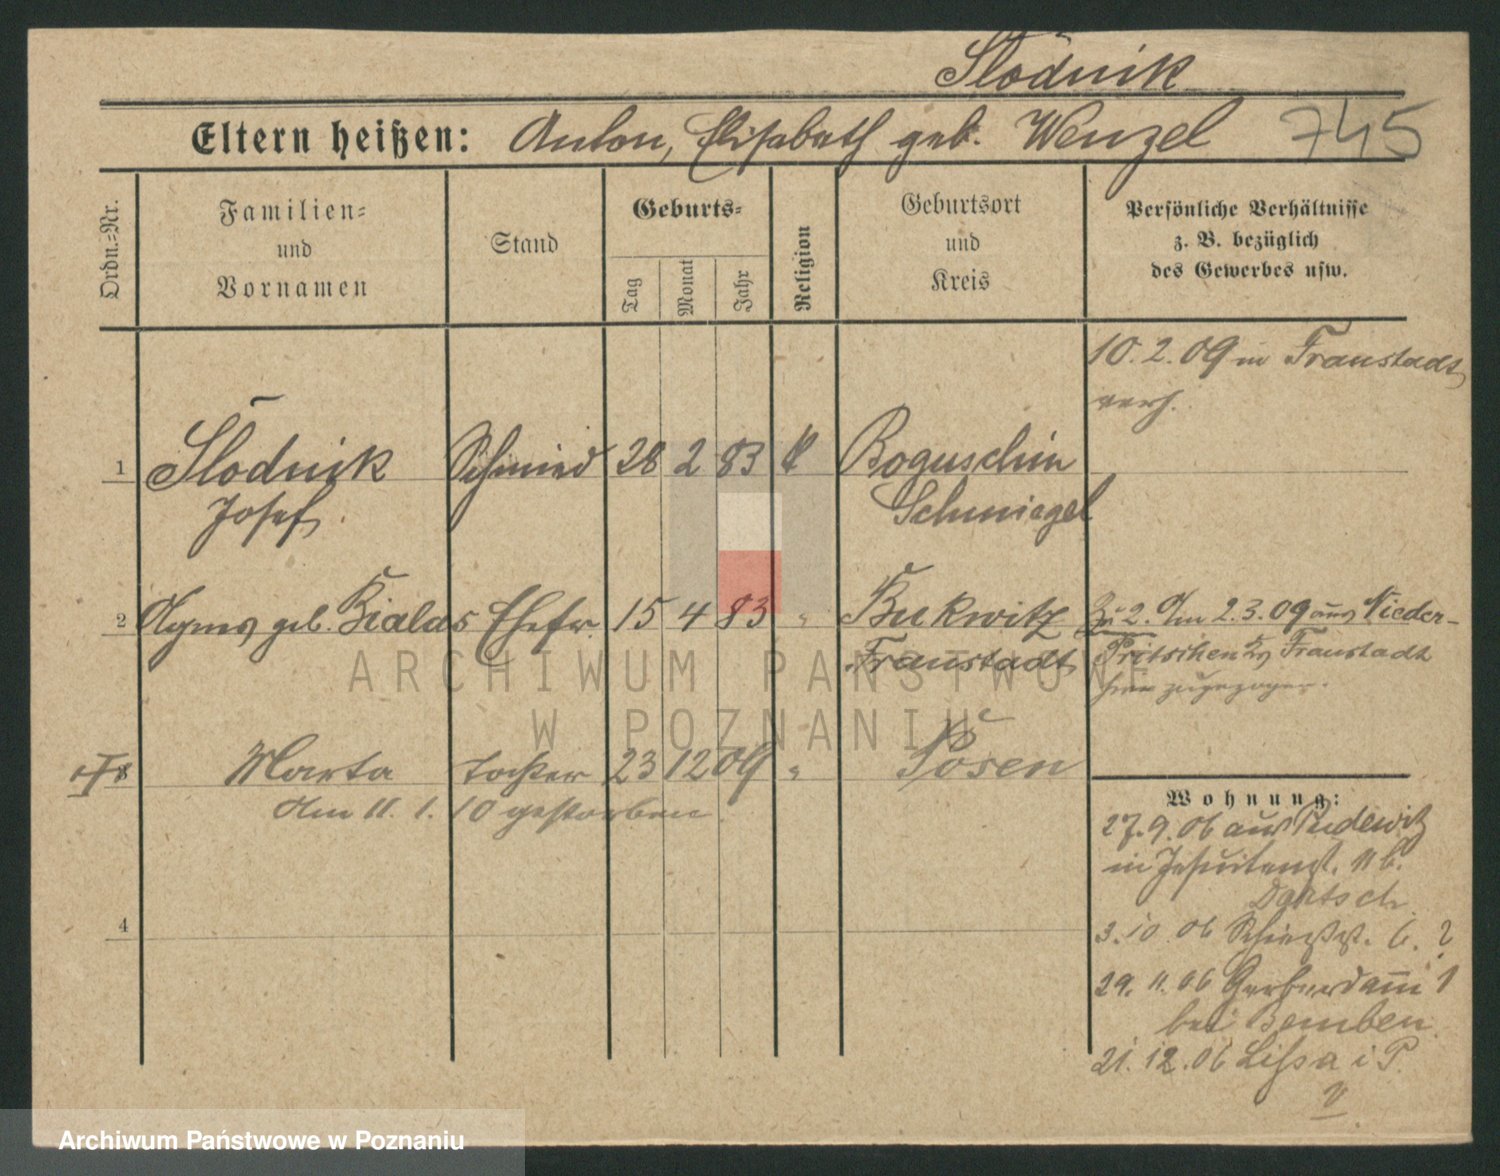 Slodnik
Eltern heißen: Anton, Elisabeth geb. Wenzel 745
Ordn.-Nr.
Familien-
und
Vornamen
Stand
Geburts-
Tag
Monat
Jahr
Religion
Geburtsort
und
Kreis
Persönliche Verhältnisse
z. B. bezüglich
des Gewerbes usw.
10. 2. 09 in Fraustadt
verh.
1 Slodnik Schmied 28 2 83 K Boguschin
Josef. Schmiegel
2 Agnes geb. Bialas Ehefr. 15 4 83 " Bukwitz
Fraustadt
Zu 2. Am 2. 3. 09 aus Nieder-
Pritschen Fraustadt
hier zugezogen.
3 Marta Tochter 23 12 09 " Posen
Am 11. 1. 10 gestorben
4
Wohnung:
27. 9. 06 aus Pudewitz
in Jesuitenst. 11 b.
Dartsch
3. 10. 06 Schießst. 6. ?
29. 11. 06 Gerberdam 1
bei Bemben
21. 12. 06 Lissa i P.
V
ARCHIWUM PAŃSTWOWE
W POZNANIU
Archiwum Państwowe w Poznaniu